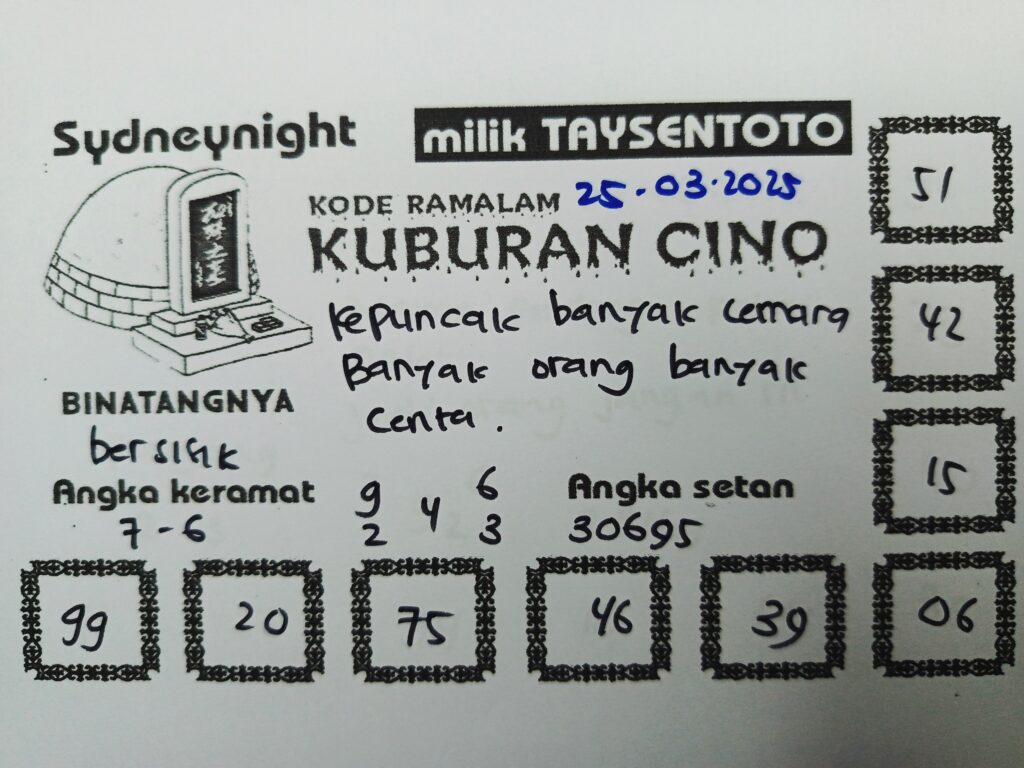 Sydneynight
milik TAYSENTOTO
KODE RAMALAM 25-03-2025
KUBURAN CINO
Kepuncak banyak cemara
Banyak orang banyak
centa.
BINATANGNYA
bersisik
Angka keramat
7-6
9 6
4
2 3
Angka setan
30695
51
42
15
99 20 75 46 39 06